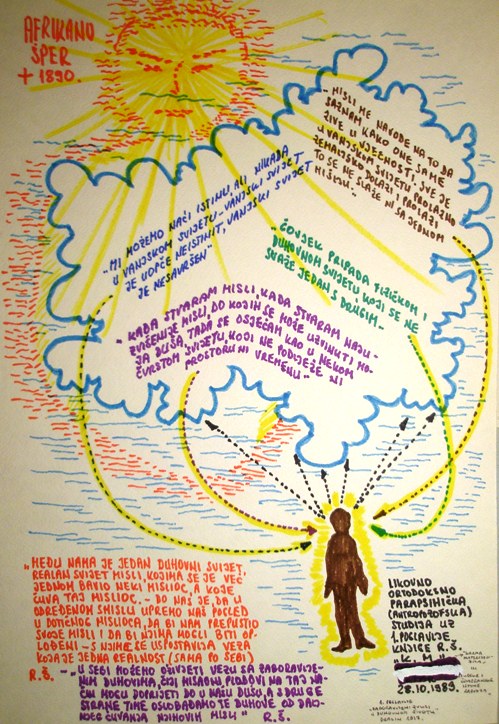 AFRIKANO
ŠPER
+ 1890.
- MISLI ME NAVODE NA TO DA
SAZNAM KAKO ONE SAME
ŽIVE U VJEČNOST, SVE JE
U VANJSKOM SVIJETU, PROLAZNO
ZEMALJSKOM DOLAZI I PROLAZI
TO SE NE SLAŽE NI SA JEDNOM
MIŠLJU.-
„MI MOŽEMO NAĆI ISTINU, ALI NIKADA
U VANJSKOM SVIJETU - VANJSKI SVIJET
JE UOPĆE NEISTINIT, VANJSKI SVIJET
JE NESAVRŠEN"
- ČOVJEK PRIPADA FIZIČKOM I
DUHOVNOM SVIJETU KOJI SE NE
SLAŽE JEDAN S DRUGIM.-
„KADA STVARAM MISLI, KADA STVARAM NAJU-
ZVIŠENIJE MISLI, DO KOJIH SE MOŽE UZVINUTI MO-
JA DUŠA, TADA SE OSJEĆAM KAO U NEKOM
ČVRSTOM SVIJETU, KOJI NE PODLIJEŽE NI
PROSTORU NI VREMENU"-
„MEĐU NAMA JE JEDAN DUHOVNI SVIJET,
REALAN SVIJET MISLI, KOJIMA SE JE VEĆ
JEDNOM BAVIO NEKI MISLIOC, A KOJE
ČUVA TAJ MISLIOC, - DO NAS JE, DA U
ODREĐENOM SMISLU UPREMO NAŠ POGLED
U DOTIČNOG MISLIOCA, DA BI NAM PREPUSTIO
SVOJE MISLI I DA BI NJIMA MOGLI BITI OP-
LOĐENI - S NJIME SE USPOSTAVIJA VEZA
KOJA JE JEDNA REALNOST (SAMA PO SEBI)
R.Š. - „U SEBI MOŽEMO OŽIVJETI VEZU SA ZABORAVLJE-
NIM DUHOVIMA, ČIJI MISAONI PLODOVI NA TAJ NA-
ČIN MOGU DOPRIJETI DO U NAŠU DUŠU, A S DRUGE
STRANE TIME OSLOBAĐAMO TE DUHOVE OD DAU-
NJEG ČUVANJA NJIHOVIH MISLI" R.Š.
LIKOVNO
ORTODOKSNO
PARAPSIHIČKA
(ANTROPOZOFSKA)
STUDIJA UZ
1. POGLAVLJE
KNJIGE R.Š.
28.10.1989.